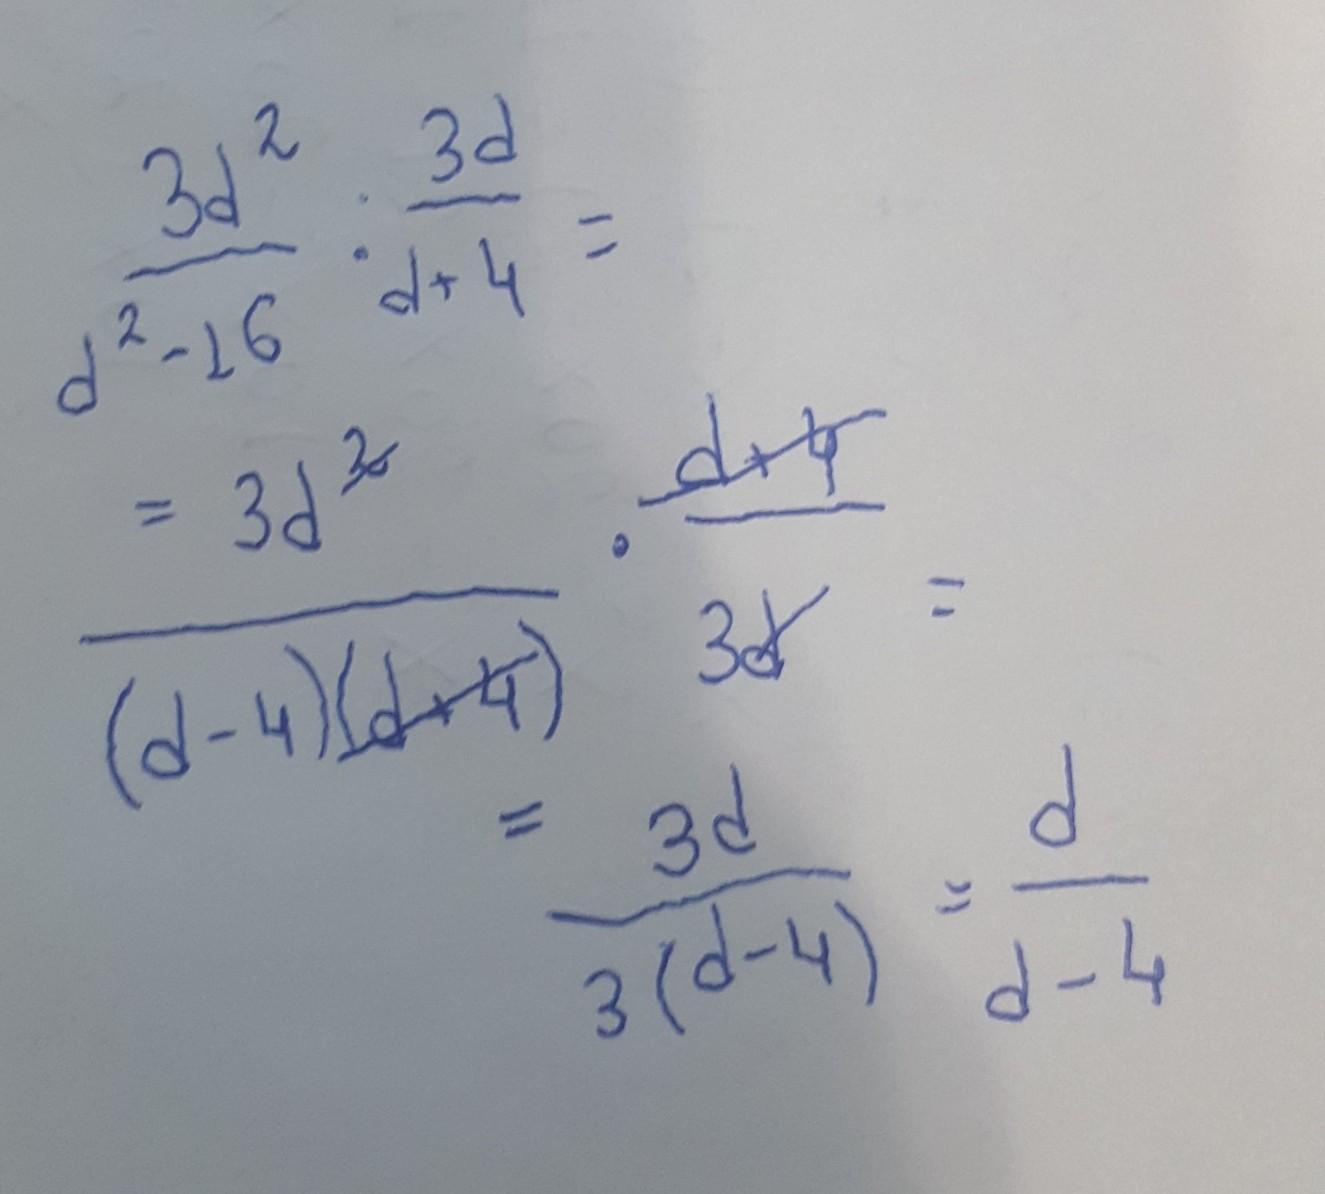 3d² / d²-16 : 3d / d+4 =
= 3d² / (d-4)(d+4) · d+4 / 3d =
= 3d / 3(d-4) = d / d-4